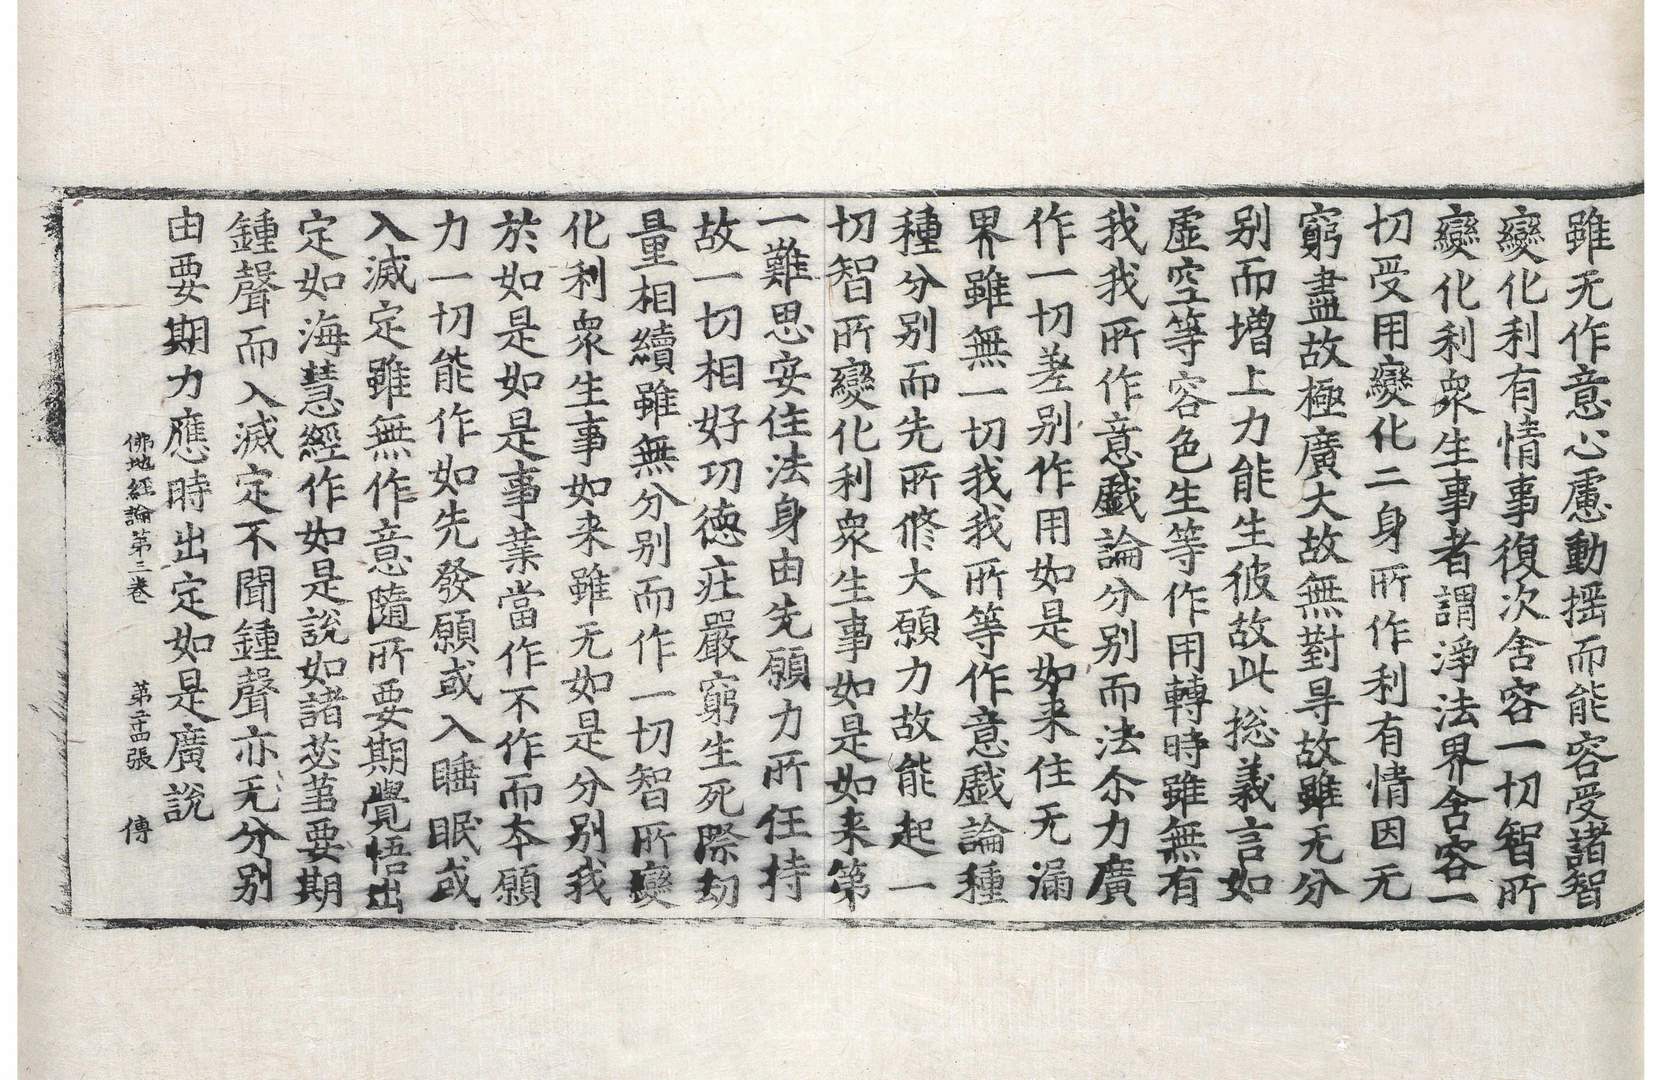 雖无作意心慮動揺而能容受諸智
變化利有情事復次含容一切智所
變化利衆生事者謂淨法界含容一
切受用變化二身所作利有情因无
窮盡故極廣大故無對㝵故雖无分
别而增上力能生彼故此捴義言如
虛空等容色生等作用轉時雖無有
我我所作意戱論分别而法尒力廣
作一切差别作用如是如来住无漏
界雖無一切我我所等作意戱論種
種分别而先所修大願力故能起一
切智所變化利衆生事如是如来第
一難思安住法身由先願力所任持
故一切相好功德莊嚴窮生死際劫
量相續雖無分别而作一切智所變
化利衆生事如来雖无如是分别我
於如是如是事業當作不作而本願
力一切能作如先發願或入睡眠或
入滅定雖無作意隨所要期覺悟出
定如海慧經作如是說如諸苾蒭要期
鍾聲而入滅定不聞鍾聲亦无分别
由要期力應時出定如是廣說
佛地經論第三卷 第二十四張 傳